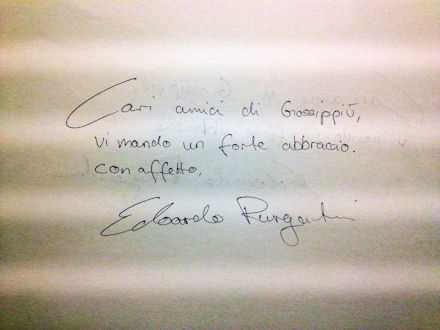 Cari amici di Gossippiù,
vi mando un forte abbraccio.
con affetto,
Edoardo Purgatori